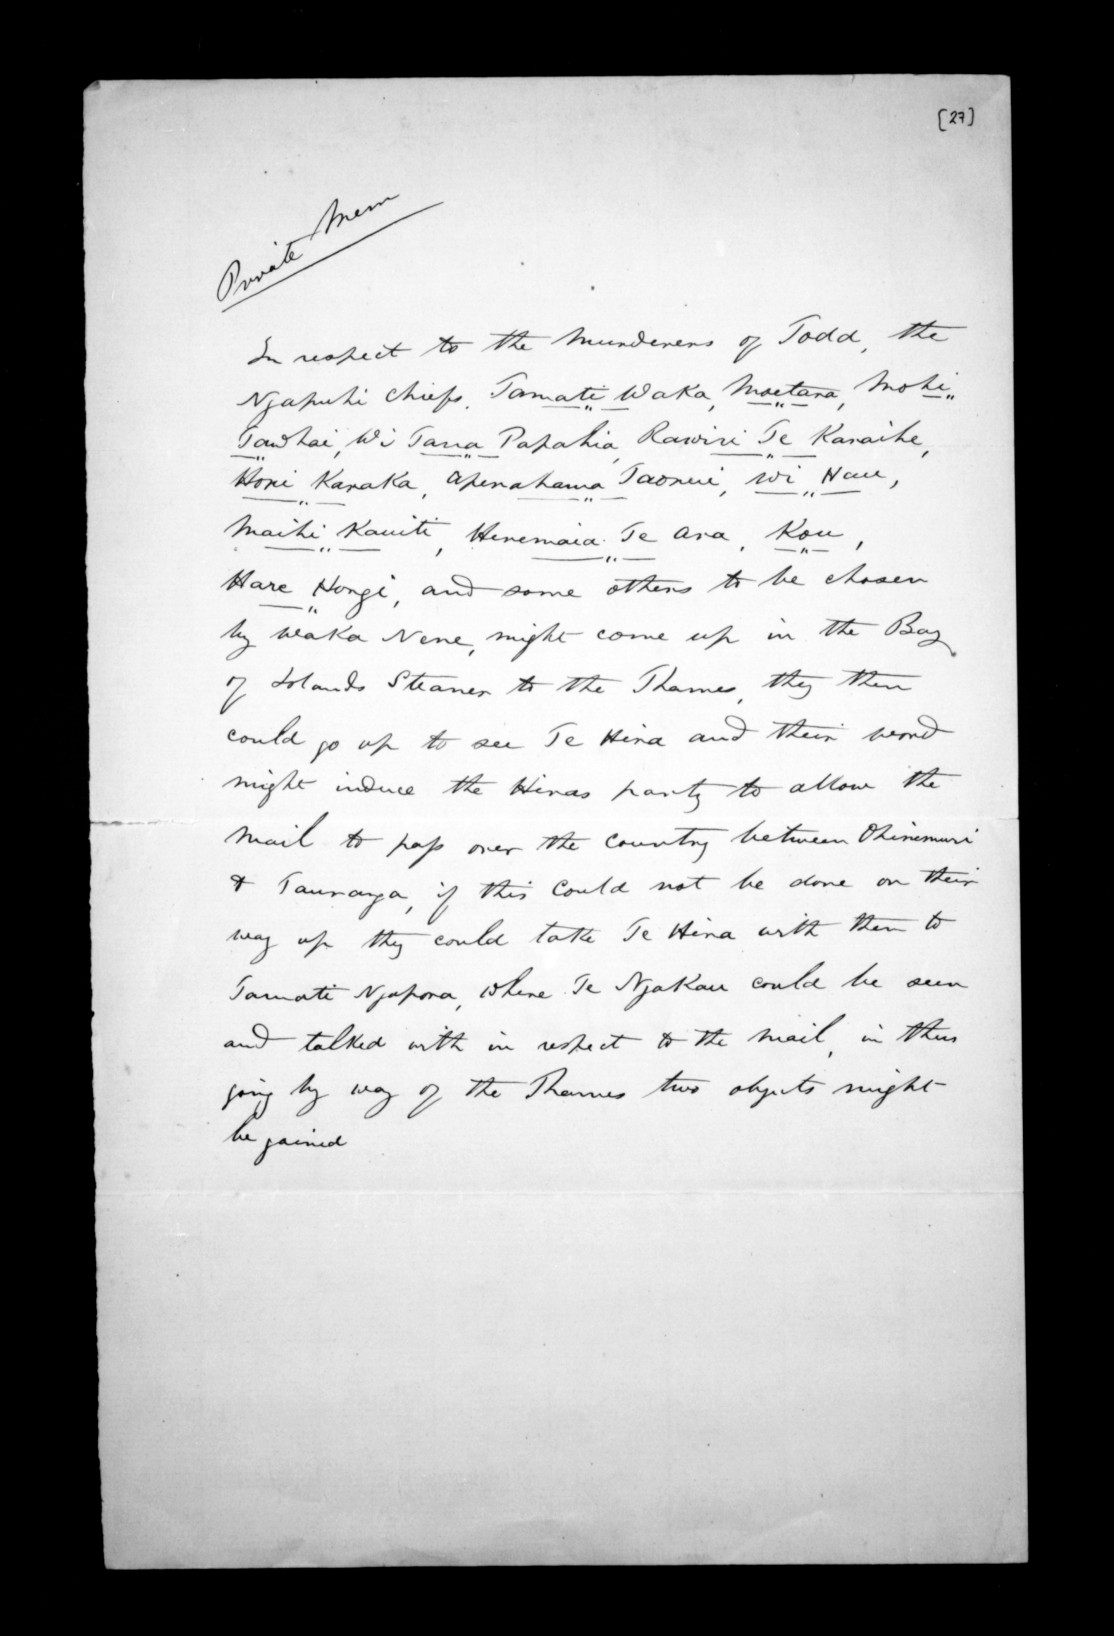 [27]
Private Mem
In respect to the Murderers of Todd, the
Ngapuhi Chiefs, Tamati Waka, Moetara, Mohi
Tawhai, Wi Tana Papahia, Rawiri Te Karaihe,
Honi Karaka, Aperahama Taonui, Wi Hau,
Maihi Kawiti, Heremaia Te Ara, Kou,
Hare Hongi, and some others to be chosen
by Waka Nene, might come up in the Bay
of Islands Steamer to the Thames, they then
could go up to see Te Hira and their word
might induce the Hiras party to allow the
Mail to pass over the country between Ohinemuri
& Tauranga, if this could not be done on their
way up they could take Te Hira with them to
Tamati Ngapora, where Te Ngakau could be seen
and talked with in respect to the Mail, in thus
going by way of the Thames two objects might
be gained